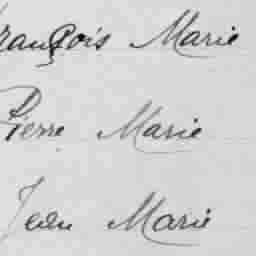 François Marie
Pierre Marie
Jean Marie